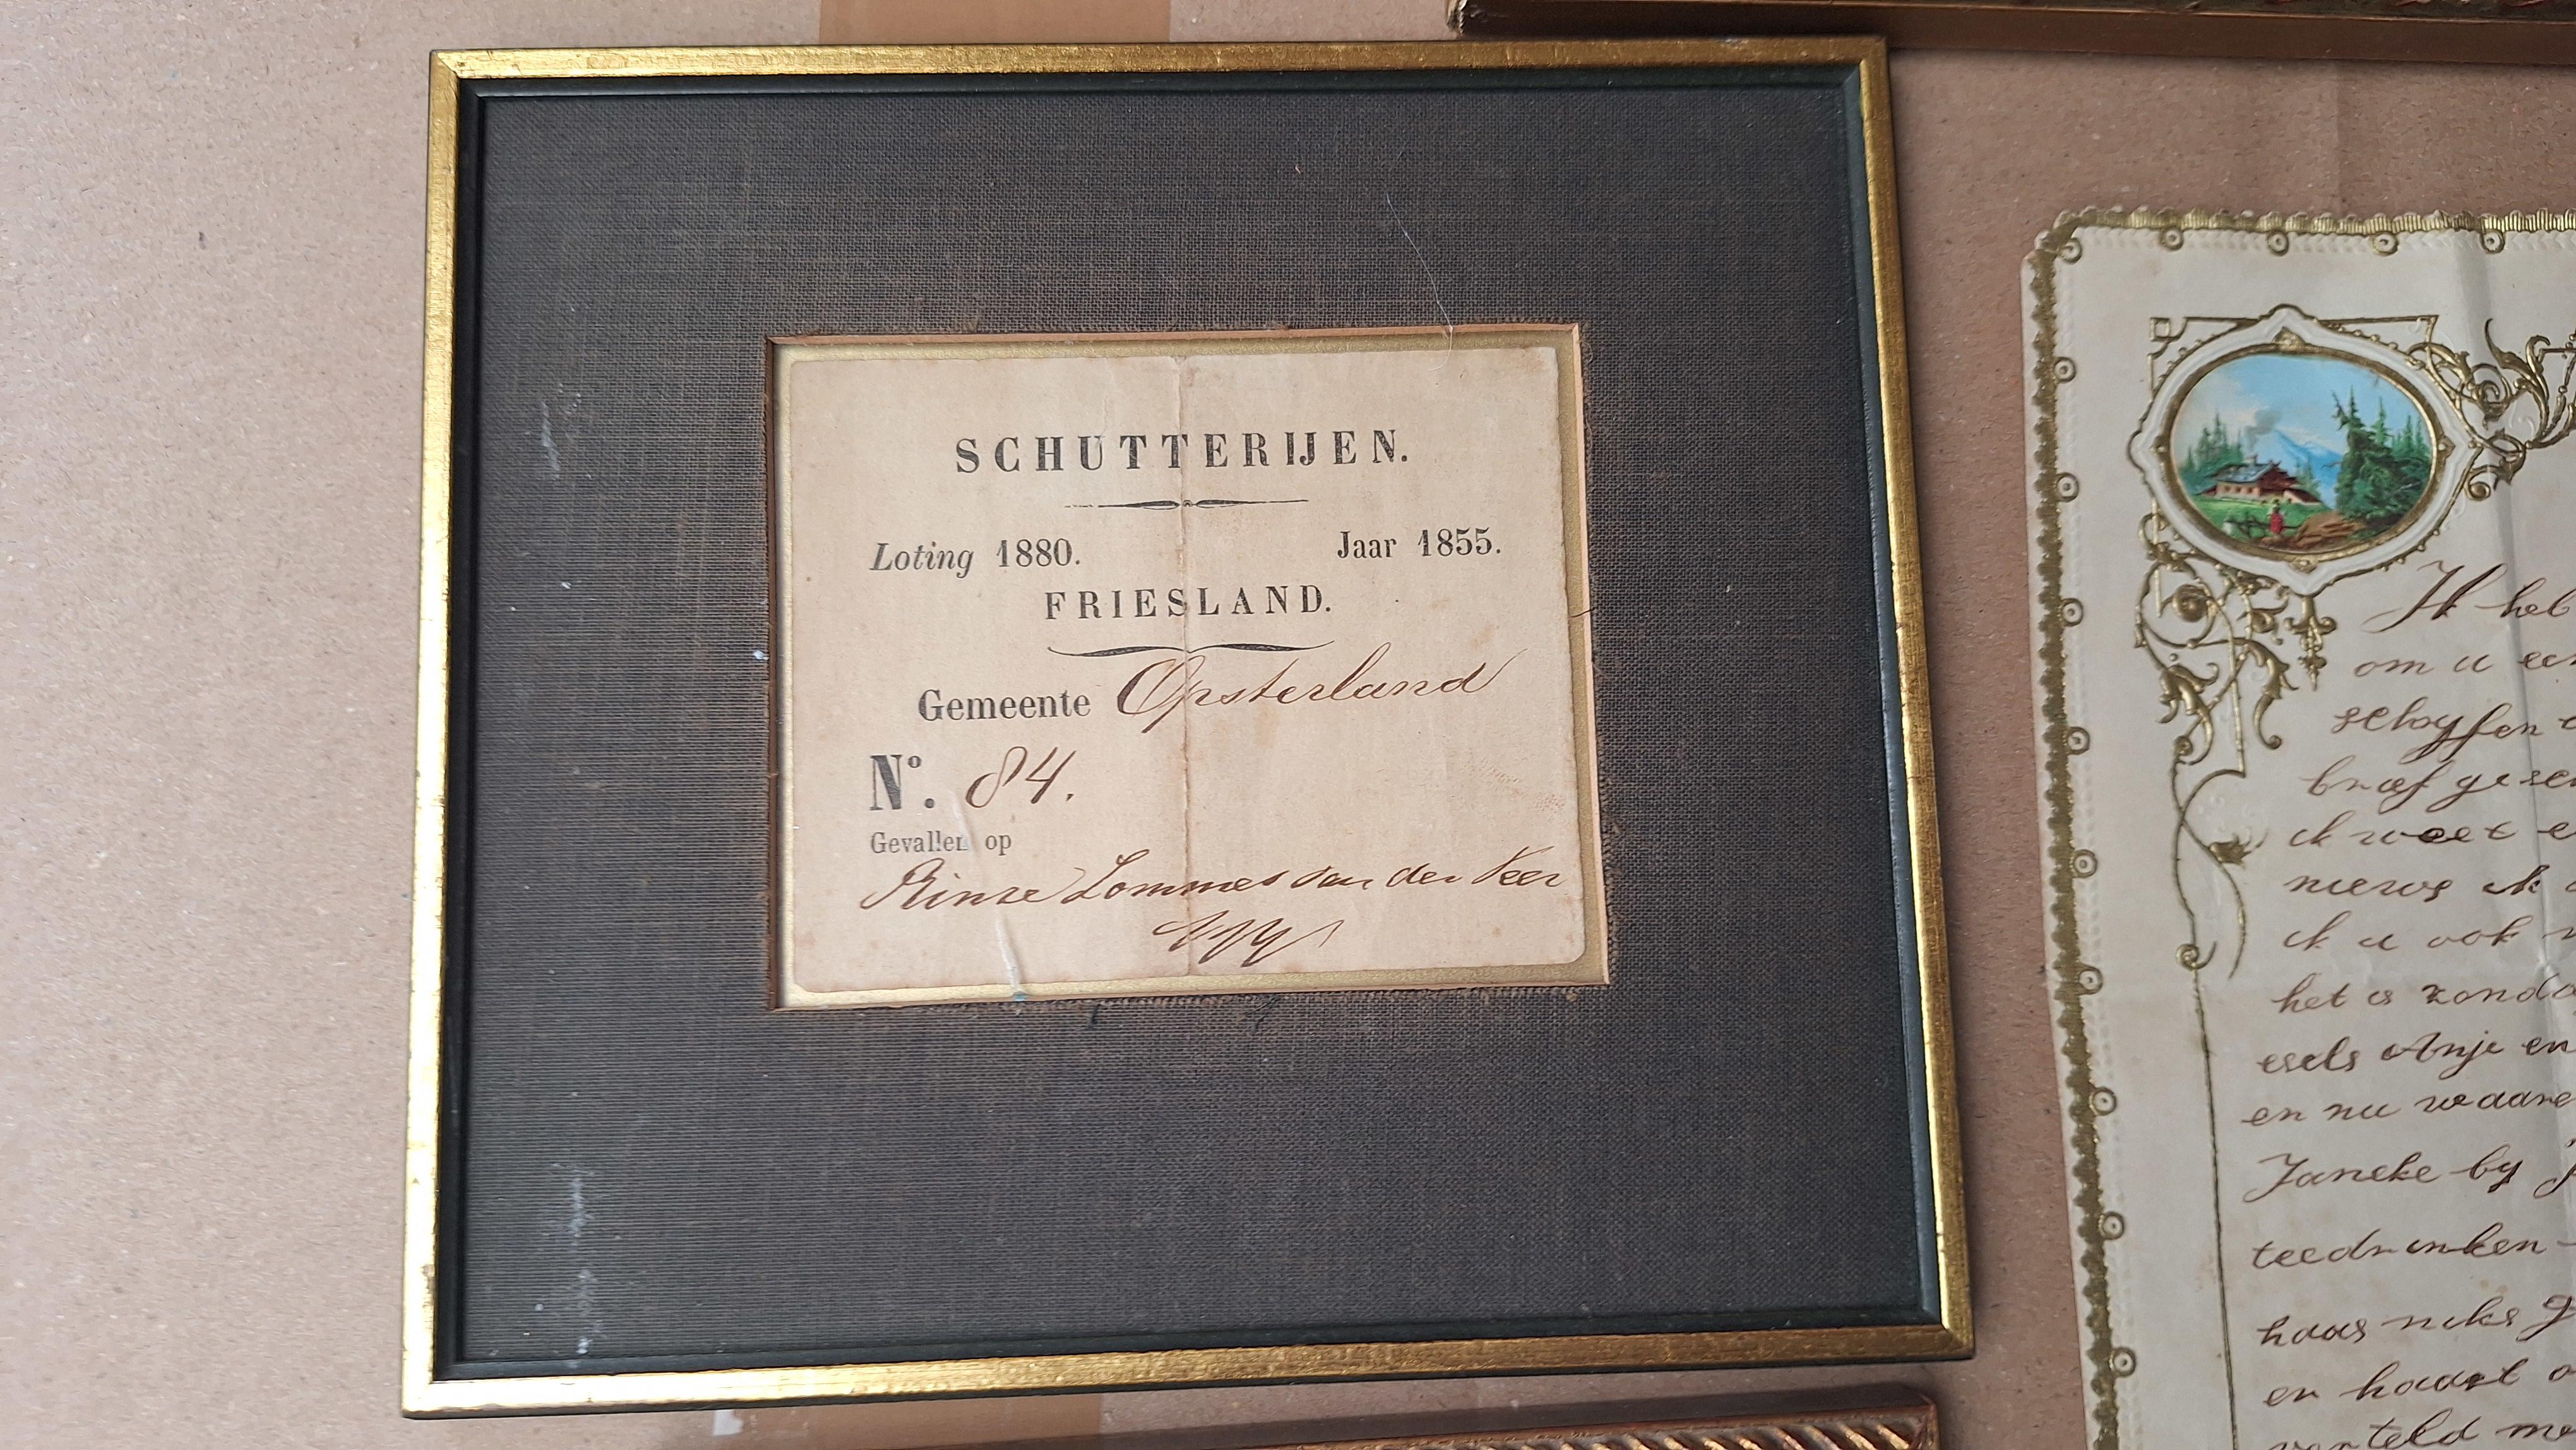 SCHUTTERIJEN.
Loting 1880. Jaar 1855.
FRIESLAND.
Gemeente Opsterland
No. 84.
Gevallen op
Rinse Lommes van der Veer
Ik heb
om u een
schryffen
braef
ik weet
nieuws ik
ik u ook
het is zonda
esels Anje en
en nu waare
Janeke by
teedrinken
haas niks g
en haast o
verteld me